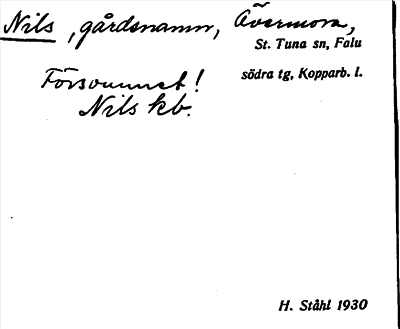 Nils, gårdsnamn, Övermora,
St. Tuna sn, Falu
södra tg, Kopparb. l.
Försvunnet!
Nils kb.
H. Ståhl 1930